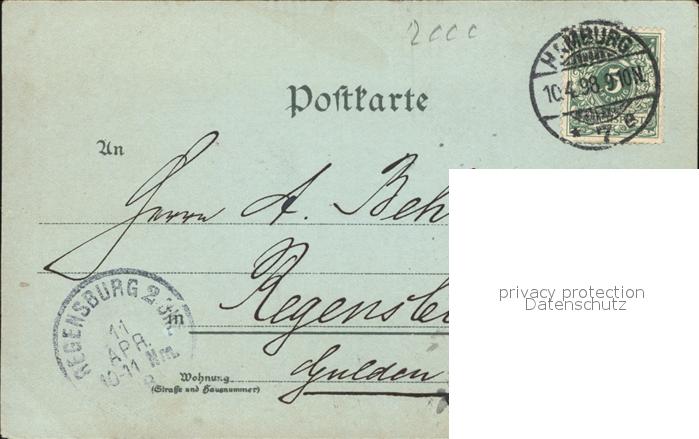 2000
HAMBURG
5
10.4.98.9-10N.
* 7 e
Postkarte
An
Herrn A. Beh
privacy protection
Datenschutz
REGENSBURG 2
11
APR.
10-11 NM.
in Regensb
Wohnung
(Straße und Hausnummer)
Gulden